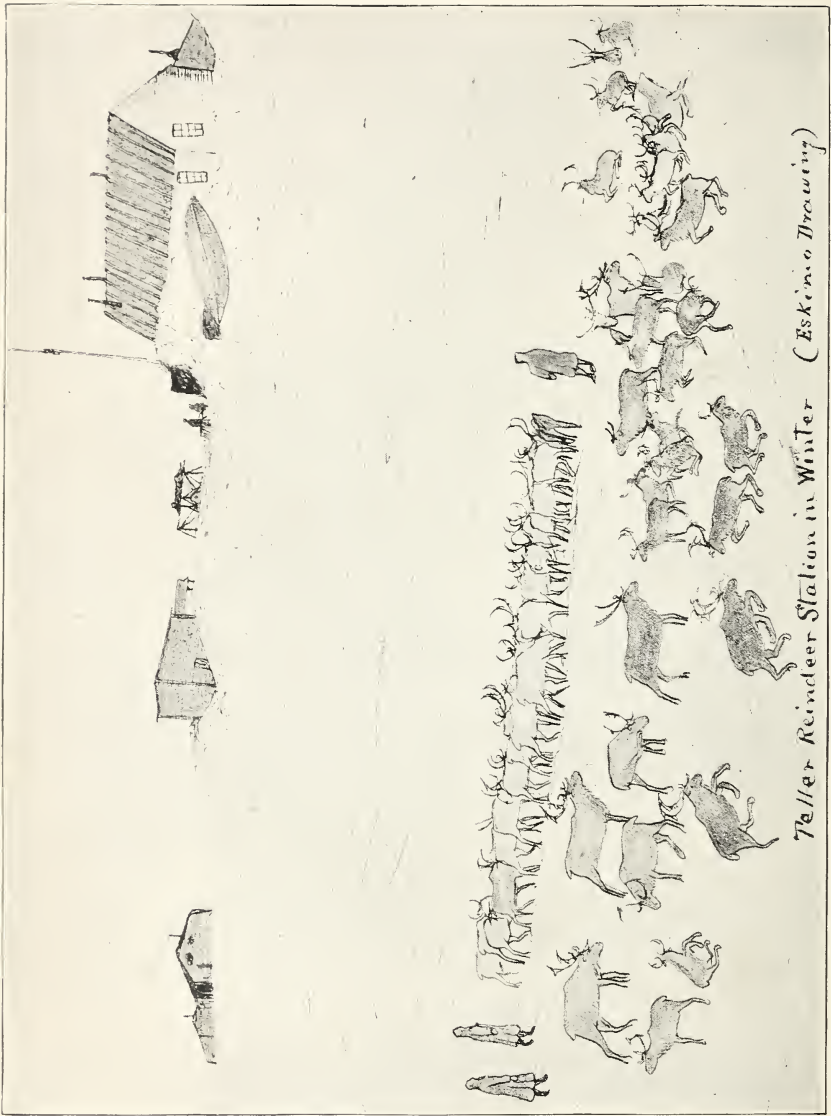 Teller Reindeer Station in Winter (Eskimo Drawing)